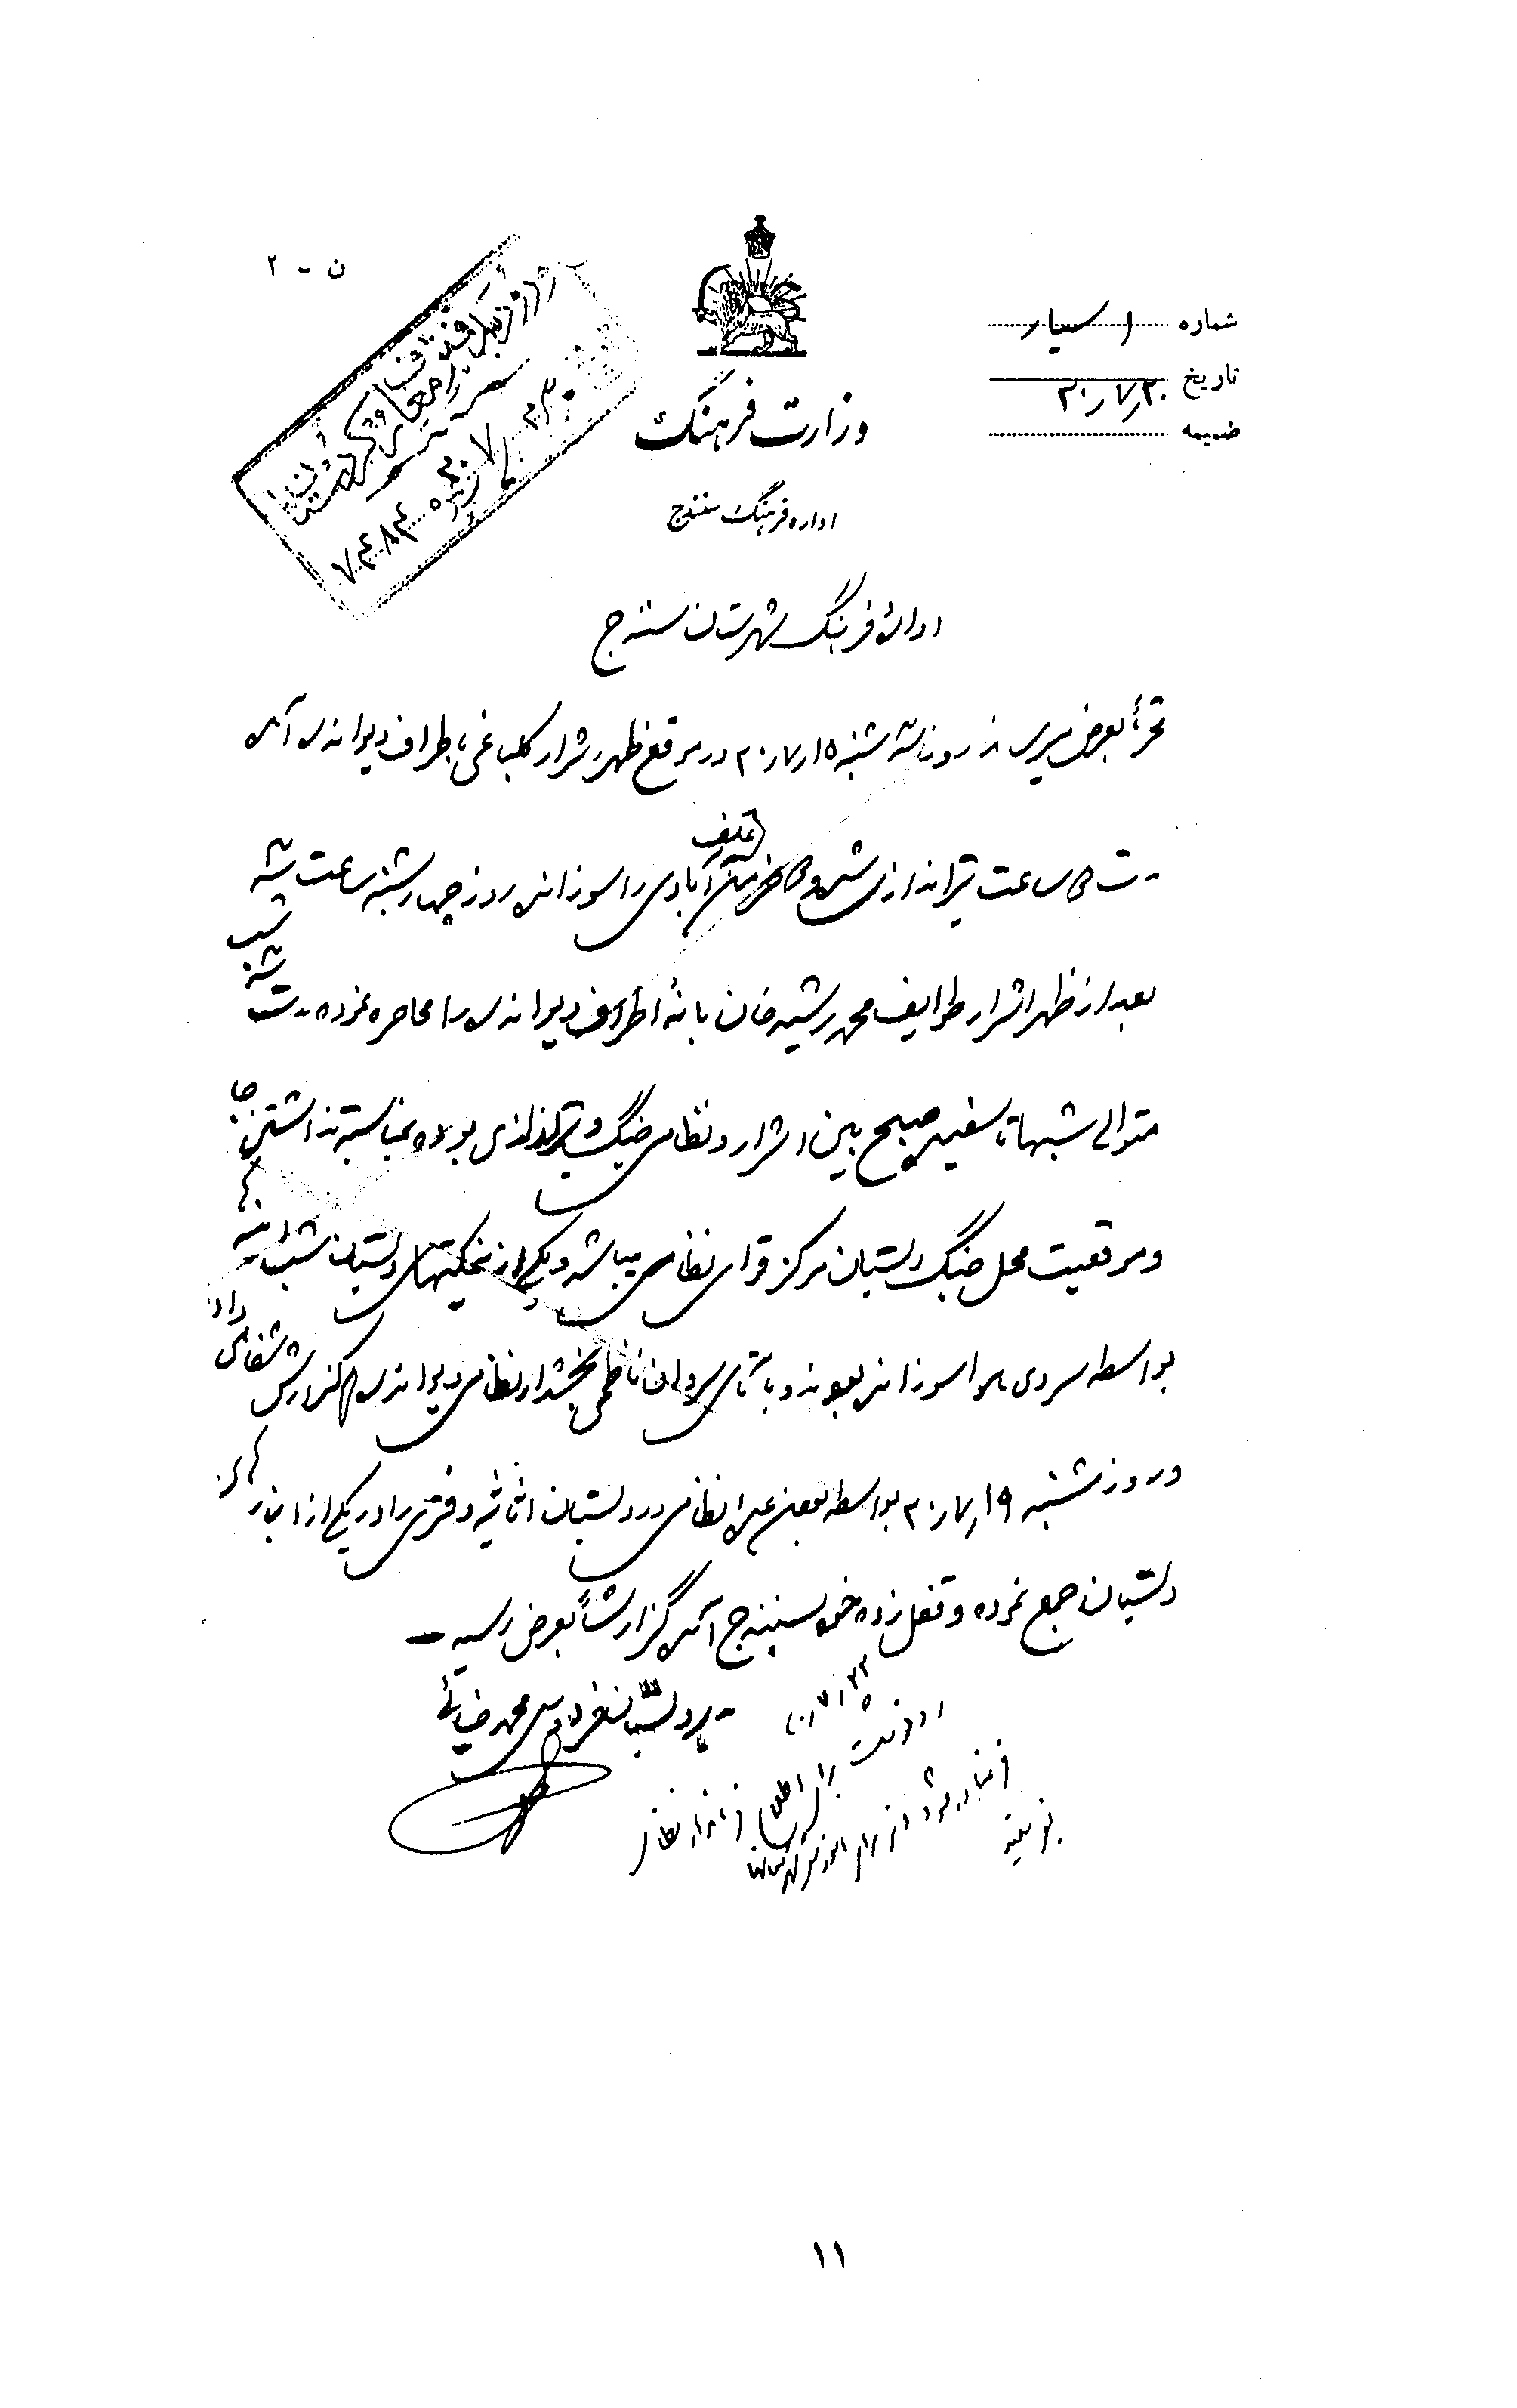 ن - ۲
شماره ۱ سیار
تاریخ ۲۰ر۷ر۲۰
ضمیمه
وزارت فرهنگ
اداره فرهنگ سنندج
اداره فرهنگ شهرستان سنندج
بعرض میرساند روز سه شنبه ۱۵ر۷ر۲۰ در موقع ظهر اشرار گلباغی باطراف دیواندره آمده
مدت ساعت تیراندازی شده و خرمن علف آبادی را سوزانده روز چهارشنبه ساعت شش
بعد از ظهر اشرار طوایف محمد رشید خان بانه اطراف دیواندره را محاصره نموده مدت شش شب
متوالی شبها تا سفیده صبح بین اشرار و نظامی جنگ و تیراندازی بوده بمناسبت نداشتن جا
و موقعیت محل جنگ دبستان مرکز قوای نظامی میباشد و یکی از نیمکتهای دبستان شب
بواسطه سردی هوا سوزانده بودند و بآقای سروان ناظمی بخشدار نظامی دیواندره گزارش شفاهی داد
و روز شنبه ۱۹ر۷ر۲۰ بواسطه بودن عده نظامی در دبستان اثاثیه دفتری را در یکی از انبار های
دبستان جمع نموده و قفل زده خود بسنندج آمده گزارشاً بعرض رسید
مدیر دبستان فردوسی محمد ضیائی
رونوشت برای اطلاع فرماندار نظامی
۱۱